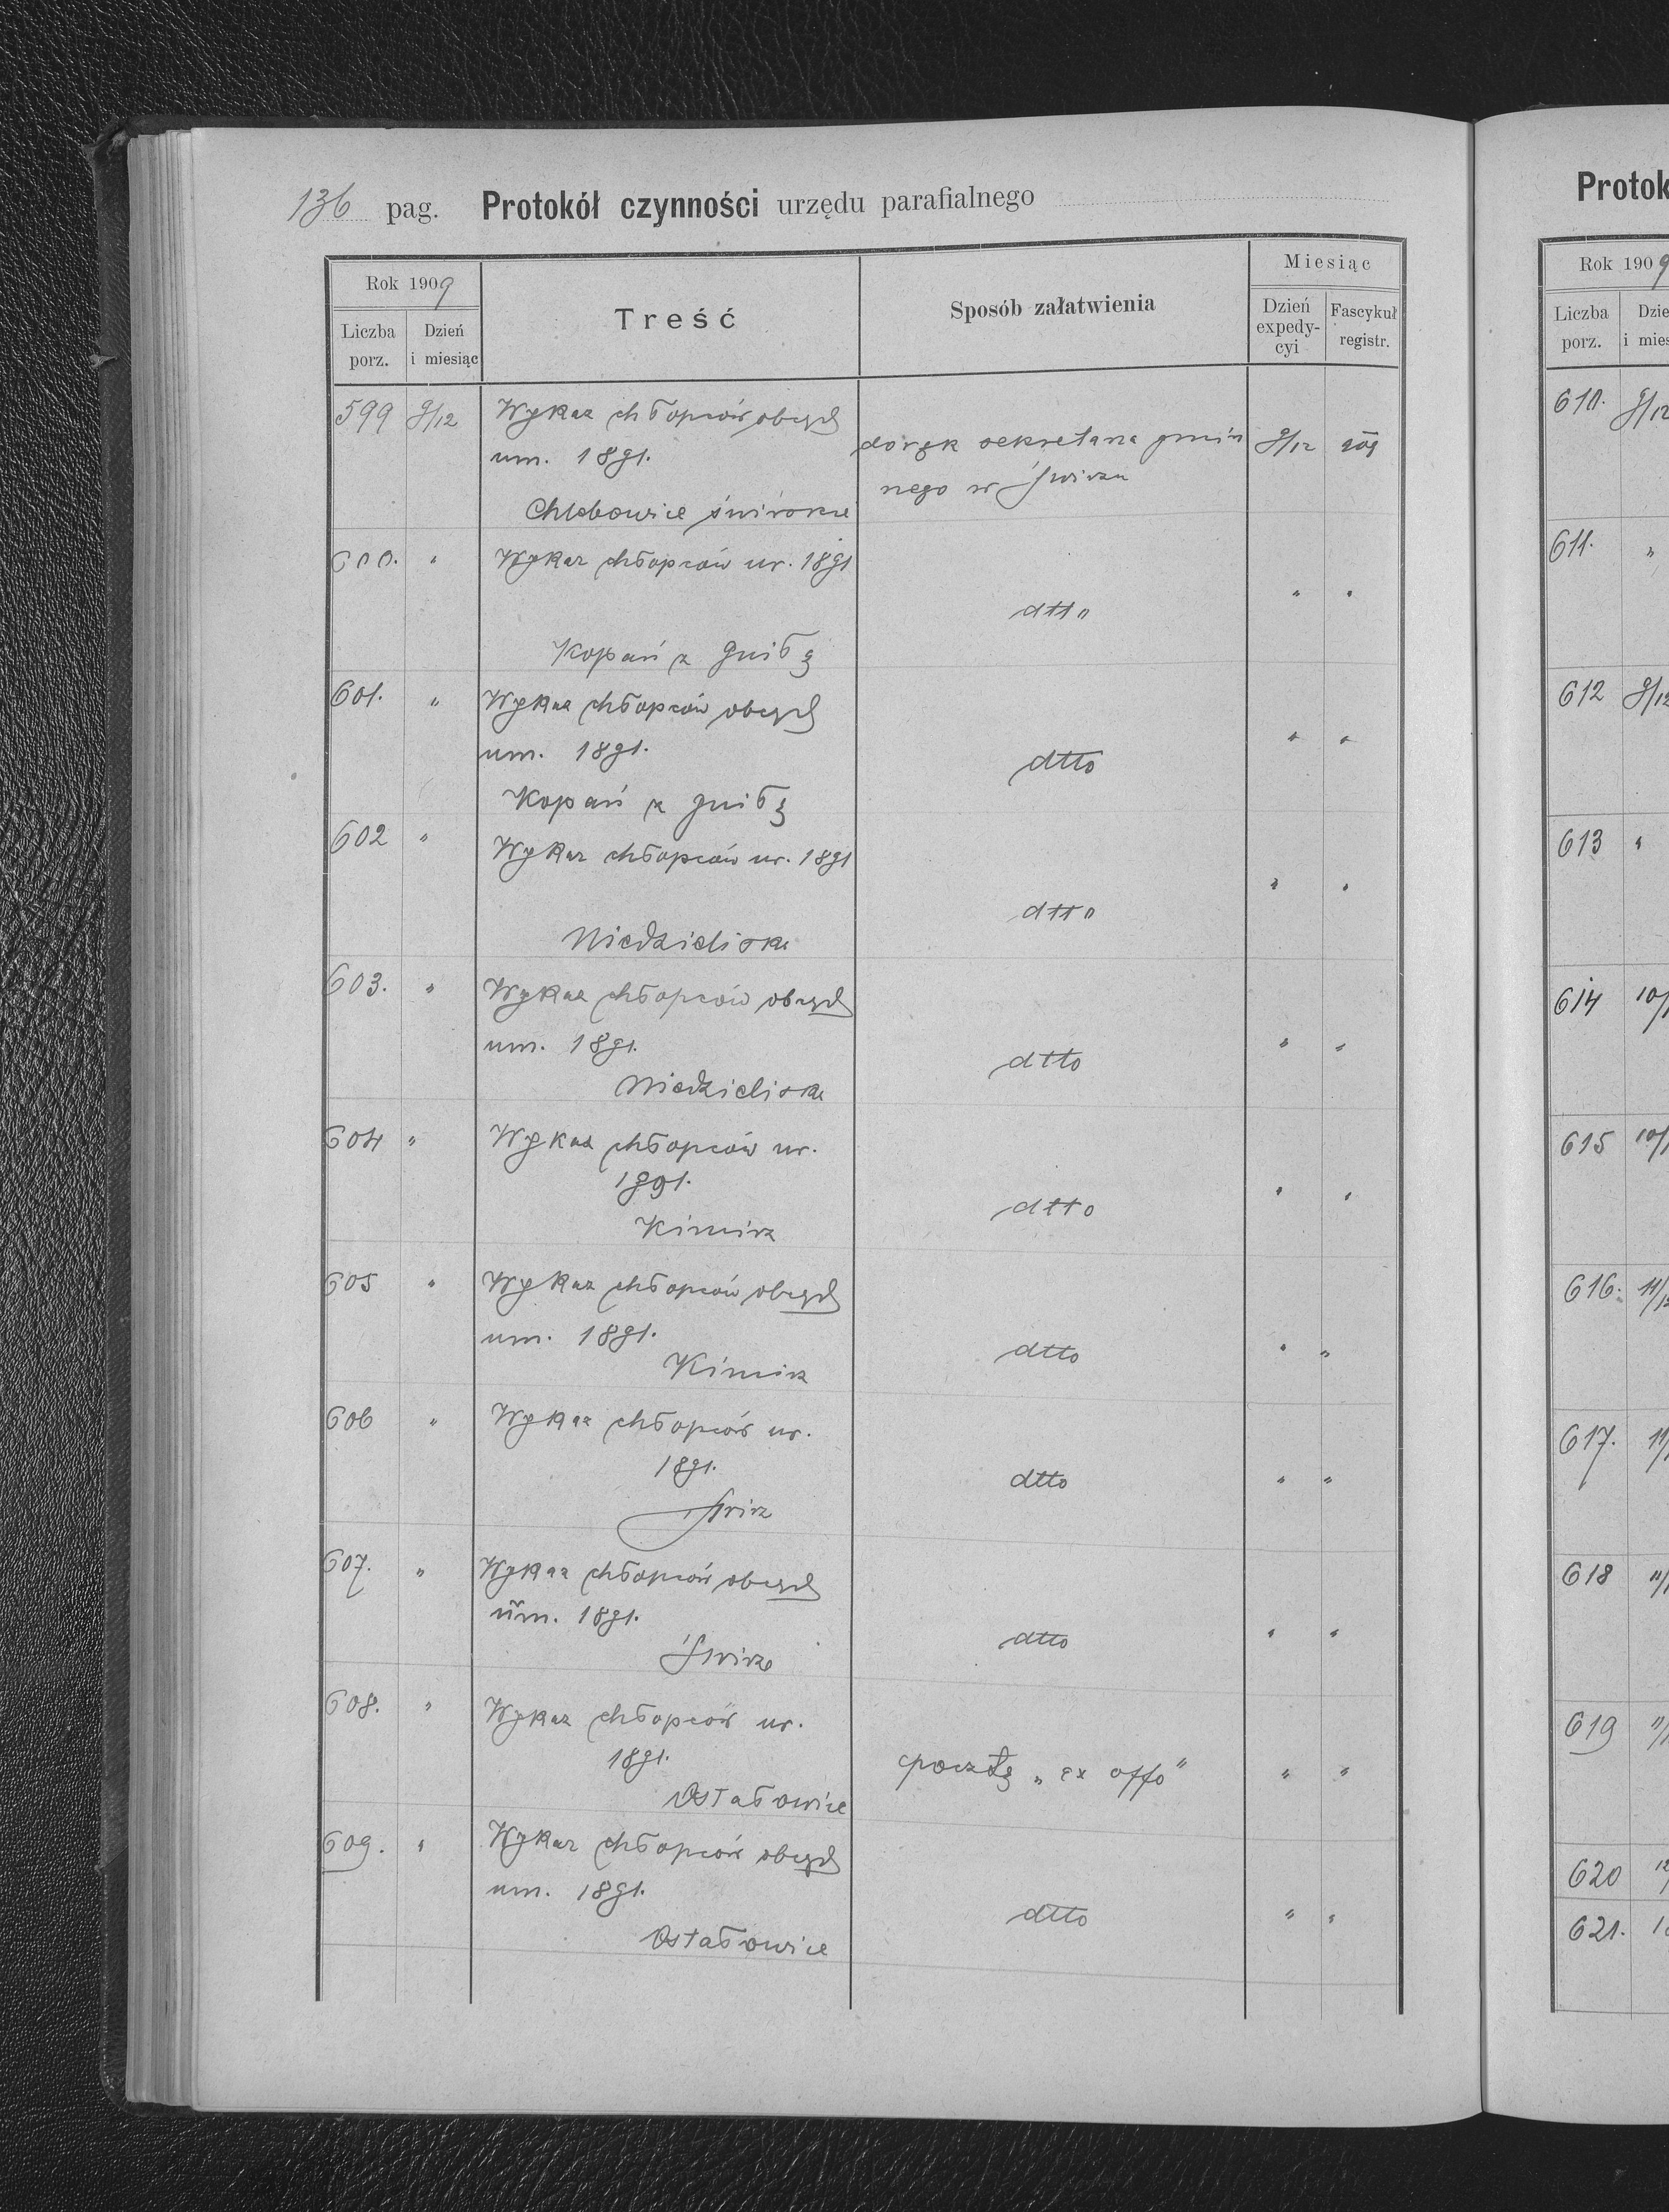 136 pag. Protokół czynności urzędu parafialnego
Rok 1909
Liczba porz.
Dzień i miesiąc
Treść
Sposób załatwienia
Miesiąc
Dzień expedycyi
Fascykuł registr.
599 9/12 Wykaz chłopców obcych
um. 1891.
Chlebowice świrskie
doręk sekretarza gmin
nego w Świrzu
9/12
600. " Wykaz chłopców ur. 1891
Kopań z Gniłą
dtto " "
601. " Wykaz chłopców obcych
um. 1891.
Kopań z Gniłą
dtto " "
602 " Wykaz chłopców ur. 1891
Niedzieliska
dtto " "
603. " Wykaz chłopców obcych
um. 1891.
Niedzieliska
dtto " "
604 " Wykaz chłopców ur.
1891.
Kimirz
dtto " "
605 " Wykaz chłopców obcych
um. 1891.
Kimirz
dtto " "
606 " Wykaz chłopców ur.
1891.
Świrz
dtto " "
607. " Wykaz chłopców obcych
um. 1891.
Świrz
dtto " "
608. " Wykaz chłopców ur.
1891.
Ostałowice
pocztą „ex offo" " "
609. " Wykaz chłopców obcych
um. 1891.
Ostałowice
dtto " "
Protok
Rok 1909
Liczba porz.
Dzie
i mies
610. 9/12
611. "
612 9/12
613 "
614 10/
615 10/
616. 11/12
617. 11/
618 11/
619 11/
620 12/
621.